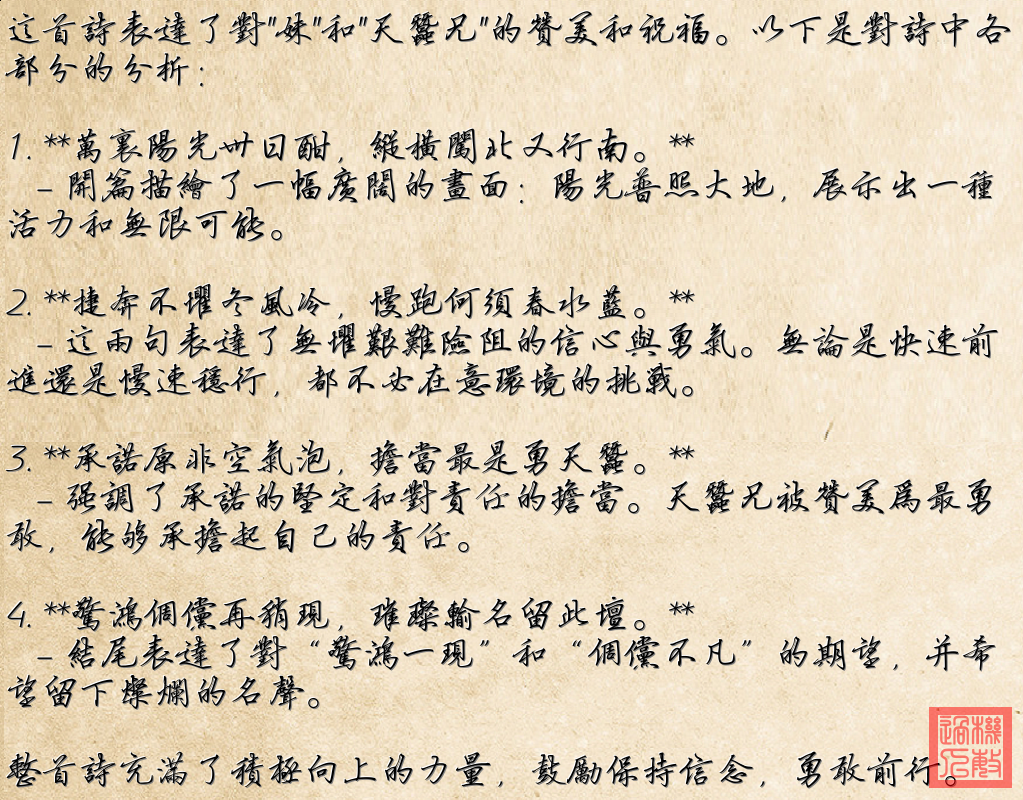 這首詩表達了對"妹"和"天蠶兄"的贊美和祝福。以下是對詩中各
部分的分析：
1. **萬裏陽光卅日酣，縱橫闖北又行南。**
- 開篇描繪了一幅廣闊的畫面：陽光普照大地，展示出一種
活力和無限可能。
2. **捷奔不懼冬風冷，慢跑何須春水藍。**
- 這兩句表達了無懼艱難險阻的信心與勇氣。無論是快速前
進還是慢速穩行，都不必在意環境的挑戰。
3. **承諾原非空氣泡，擔當最是勇天蠶。**
- 强調了承諾的堅定和對責任的擔當。天蠶兄被贊美爲最勇
敢，能够承擔起自己的責任。
4. **驚鴻倜儻再稍現，璀璨輸名留此壇。**
- 結尾表達了對“驚鴻一現”和“倜儻不凡”的期望，并希
望留下燦爛的名聲。
整首詩充滿了積極向上的力量，鼓勵保持信念，勇敢前行。